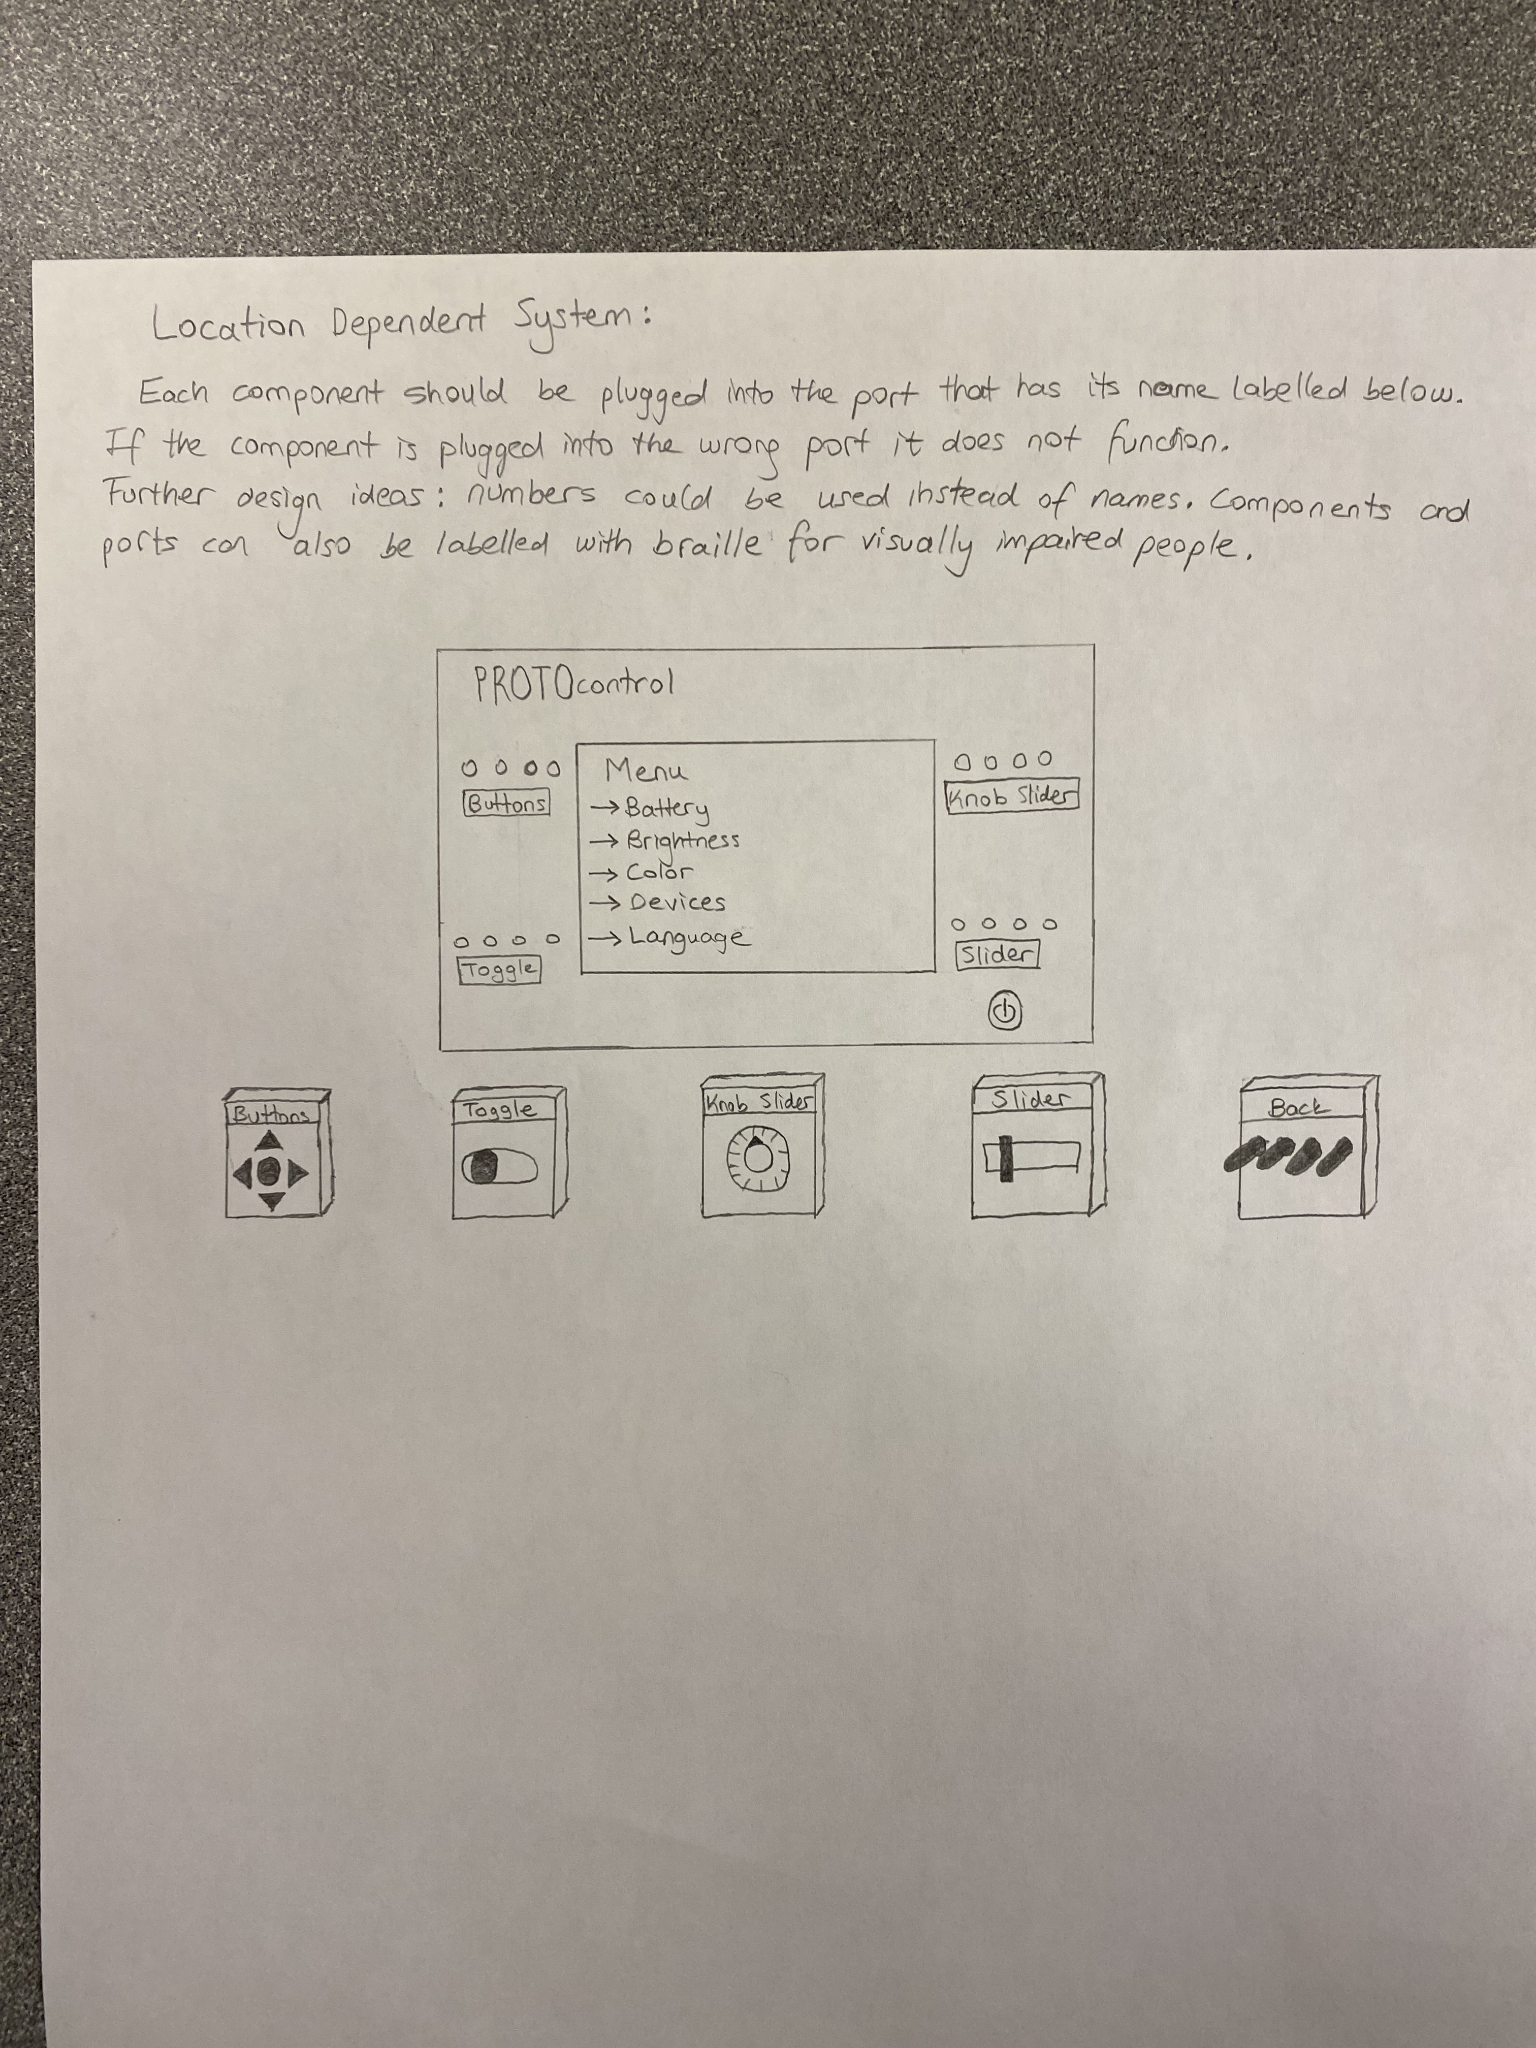 Location Dependent System:
Each component should be plugged into the port that has its name labelled below.
If the component is plugged into the wrong port it does not function.
Further design ideas: numbers could be used instead of names. Components and
ports can also be labelled with braille for visually impaired people.
PROTOcontrol
Buttons
Toggle
Menu
→ Battery
→ Brightness
→ Color
→ Devices
→ Language
Knob Slider
Slider
Buttons
Toggle
Knob Slider
Slider
Back